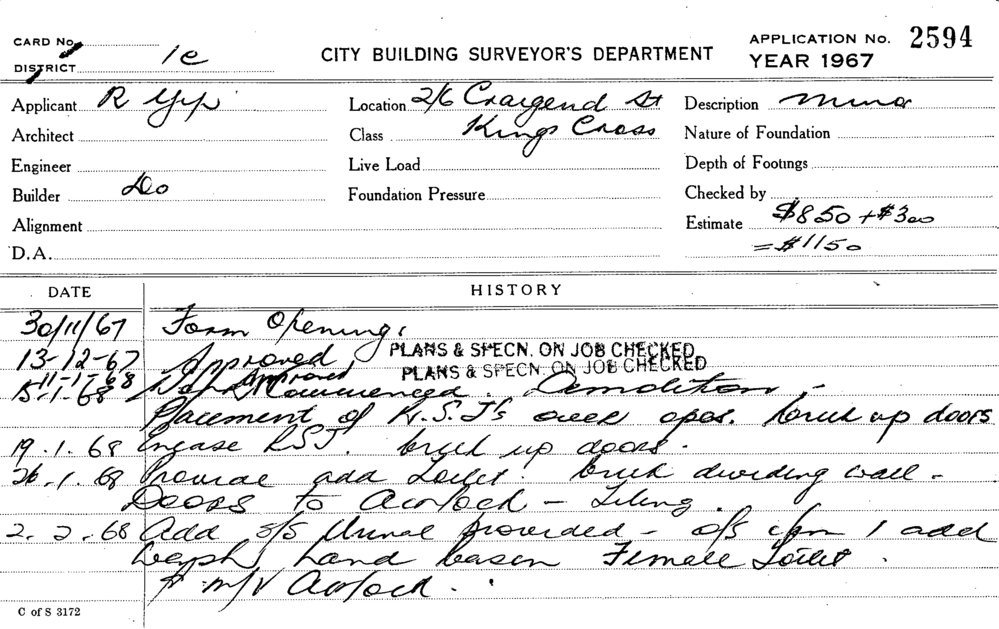 CARD No.
DISTRICT 1c
CITY BUILDING SURVEYOR'S DEPARTMENT
APPLICATION No. 2594
YEAR 1967
Applicant R Yip
Architect
Engineer
Builder Do
Alignment
D.A.
Location 2/6 Craigend St
Class Kings Cross
Live Load
Foundation Pressure
Description Minor
Nature of Foundation
Depth of Footings
Checked by
Estimate $850 + $300
= $1150
DATE HISTORY
30/11/67 Form Opening,
13-12-67 Approved PLANS & SPECN. ON JOB CHECKED
11-1-68 Approved PLANS & SPECN. ON JOB CHECKED
15-1-68 Commenced. Demolition -
Placement of R.S.J's over opes. brick up doors
19.1.68 Encase RSJ. brick up doors.
26.1.68 Provide add Toilet. brick dividing wall -
Doors to Airlock - Tiling.
2.2.68 Add S/S Urinal provided - 1 add
hand basin Female Toilet.
M/V Airlock.
C of S 3172